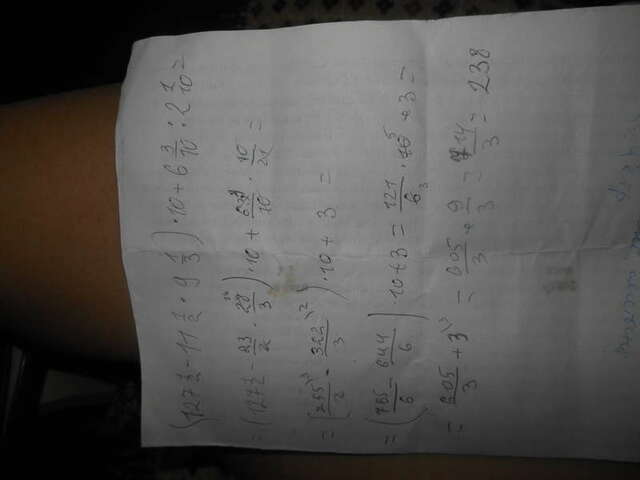 (127 1/2 - 11 1/2 · 9 1/3) · 10 + 6 3/10 : 2 1/10 =
= (127 1/2 - 23/2 · 28/3) · 10 + 63/10 · 10/21 =
= (255/2 - 322/3) · 10 + 3 =
= (765/6 - 644/6) · 10 + 3 = 121/6 · 10 + 3 =
= 605/3 + 3 = 605/3 + 9/3 = 714/3 = 238